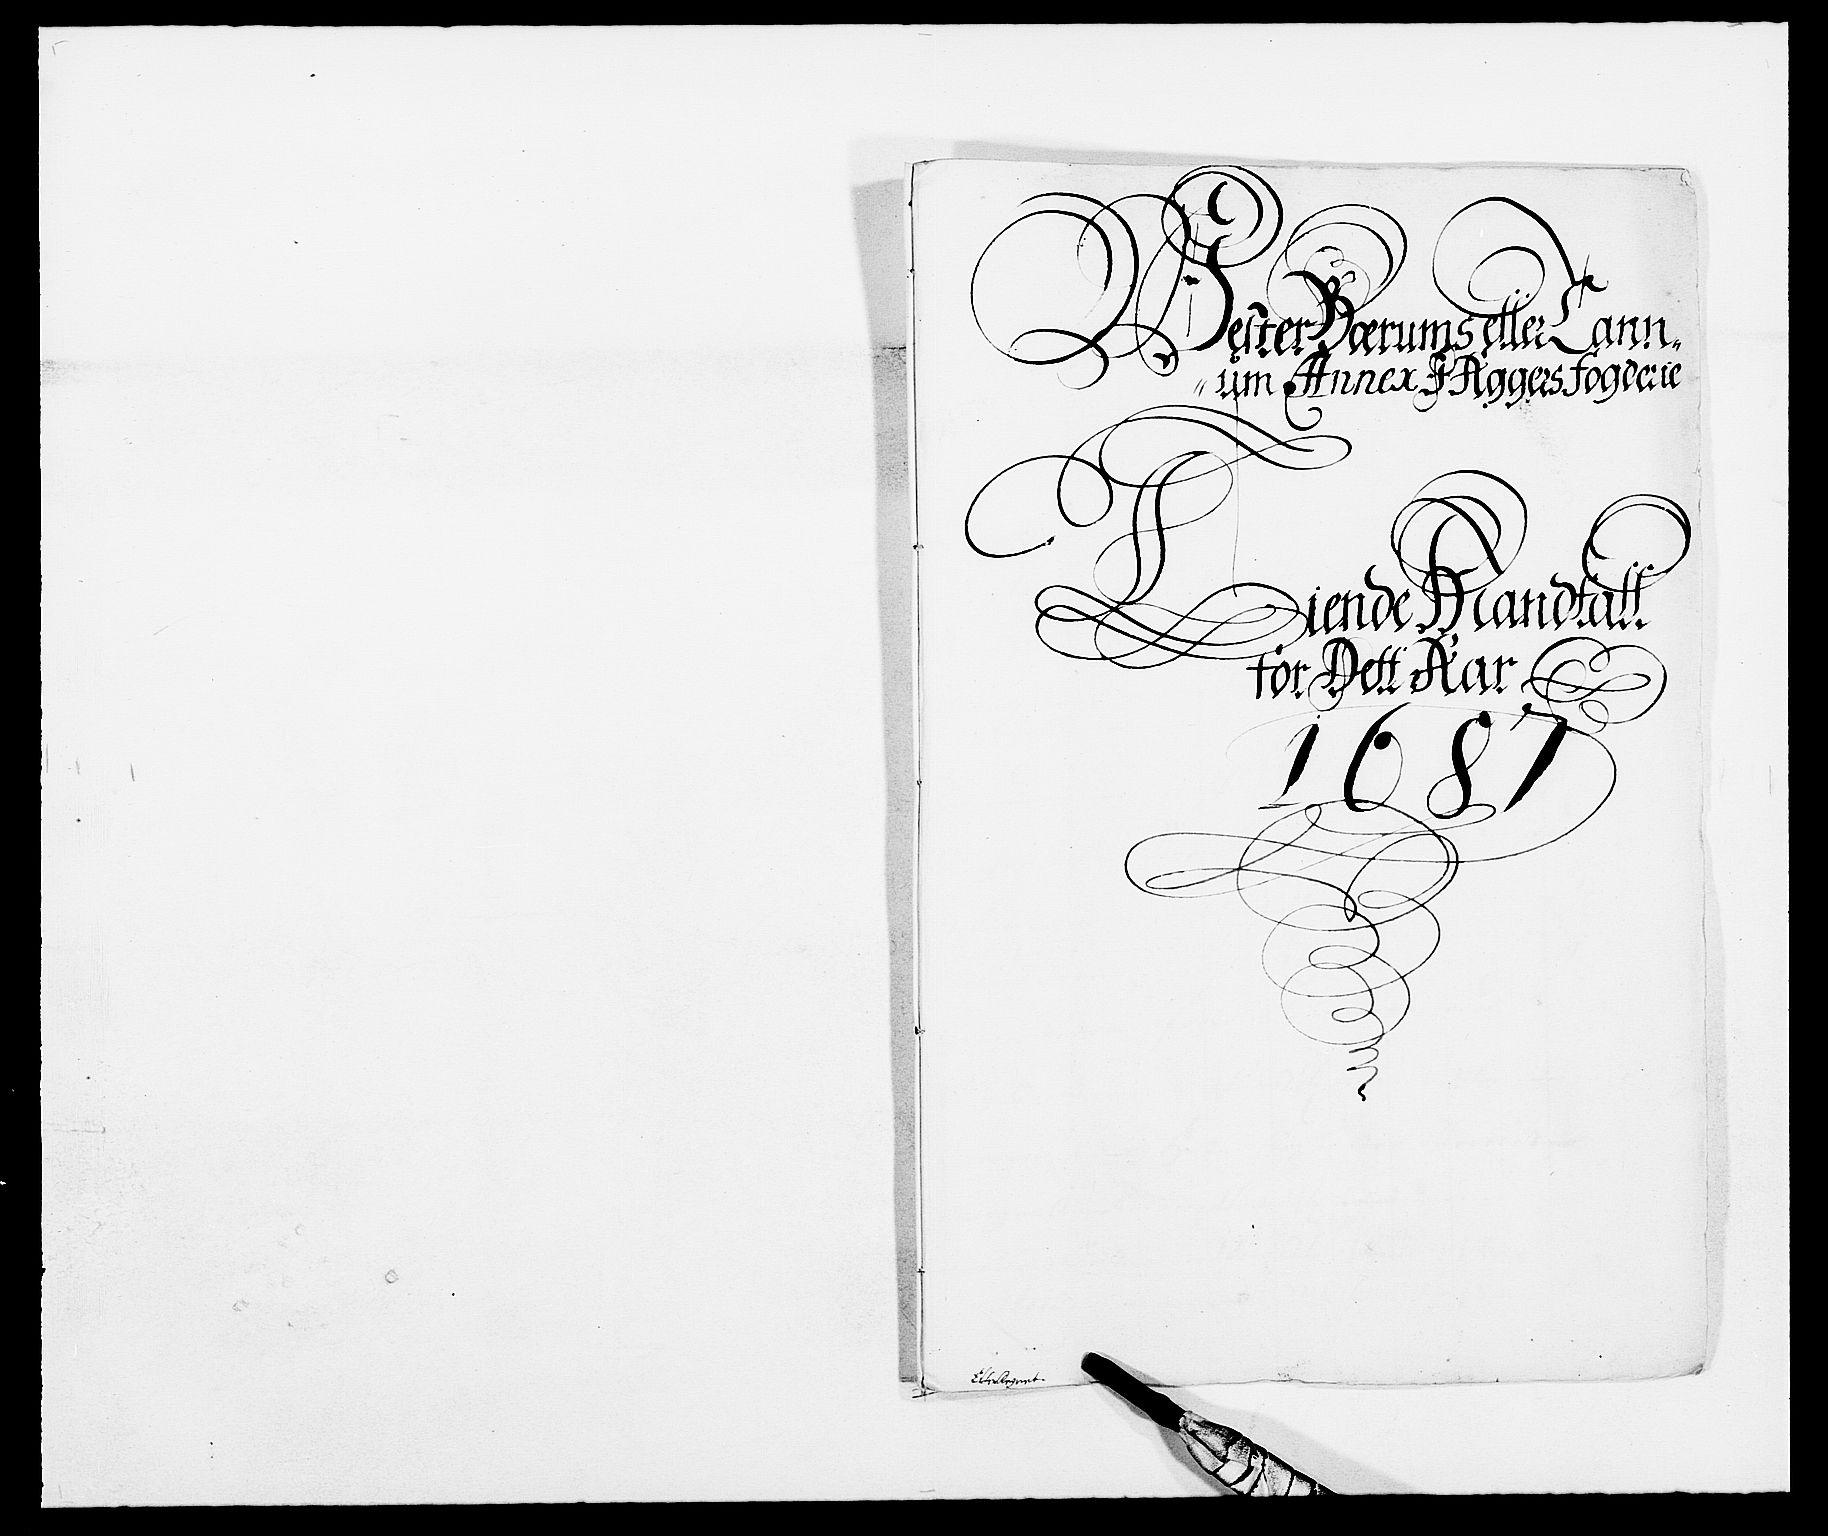 Wester Bærums eller Tann„
„um Annex I Aggers fogderie
Tiende Mandtall
for Dett Aar
1687